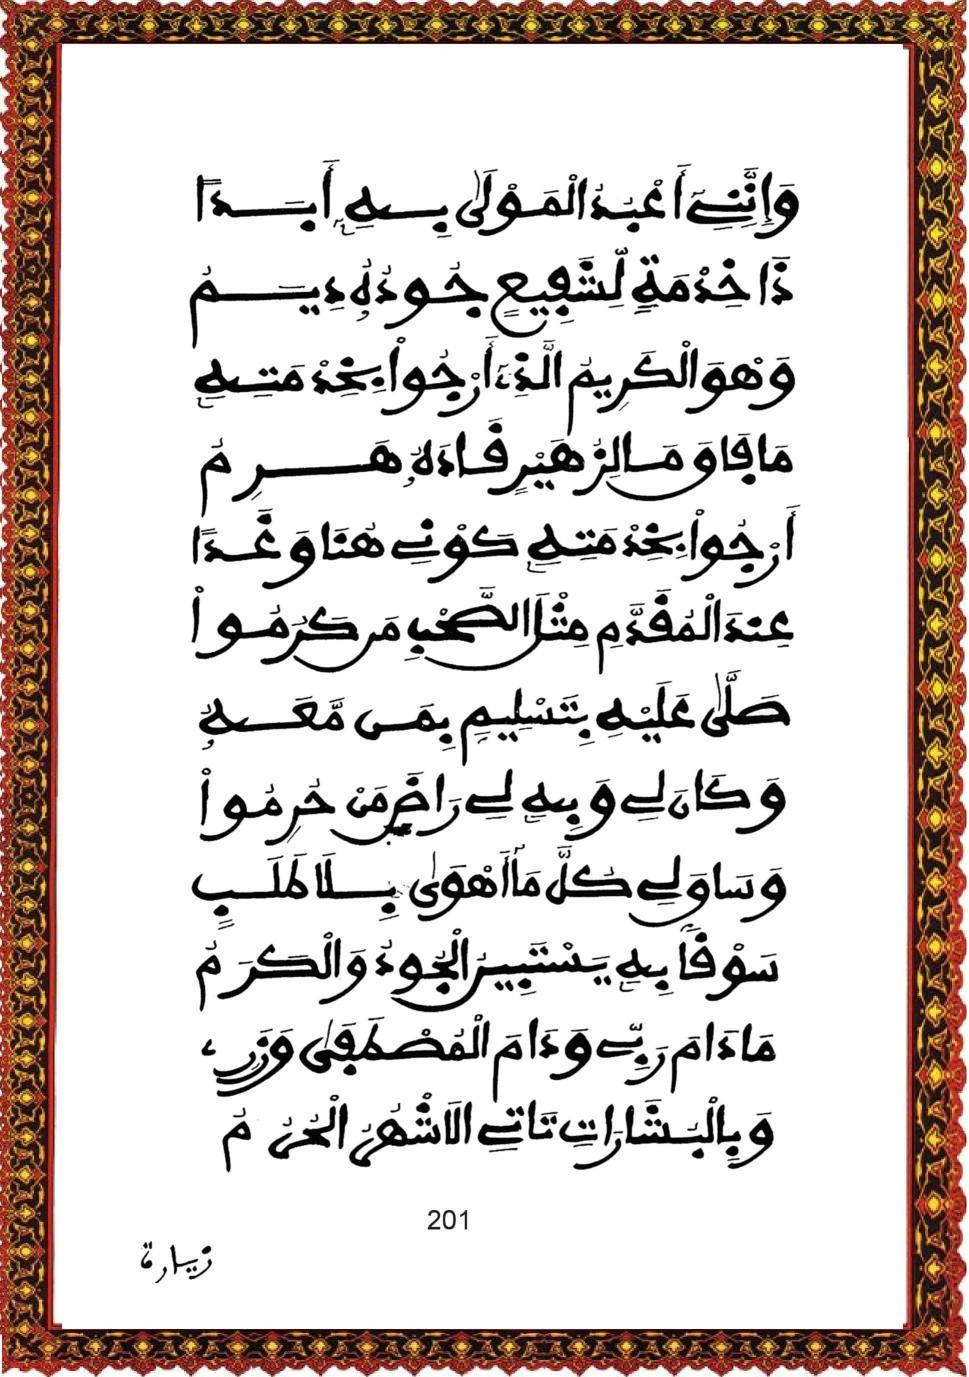 وَإِنَّنِي أَعْبُدُ الْمَوْلَى بِهِ أَبَدًا
ذَا خِدْمَةٍ لِّشَفِيعٍ جُودُهُ دِيَمُ
وَهْوَ الْكَرِيمُ الَّذِي أَرْجُواْ بِخِدْمَتِهِ
مَا فَاقَ مَا لِزُهَيْرٍ قَادَهُ هَرِمُ
أَرْجُواْ بِخِدْمَتِهِ كَوْنِي هُنَا وَغَدًا
عِندَ الْمُقَدَّمِ مِثْلَ الصَّحْبِ مَن كَرُمُواْ
صَلَّى عَلَيْهِ بِتَسْلِيمٍ بِمَن مَّعَهُ
وَكَانَ لِي وَبِهِ لِي رَاضَ مَنْ حُرِمُواْ
وَسَاقَ لِي كُلَّ مَا أَهْوَى بِلَا طَلَبٍ
سَوْقًا بِهِ يَسْتَبِينُ الْجُودُ وَالْكَرَمُ
مَا دَامَ رَبِّي وَدَامَ الْمُصْطَفَى وَزَرِي
وَبِالْبَشَارَاتِ تَاتِي الَاشْهُرُ الْحُرُمُ
201
زيارة